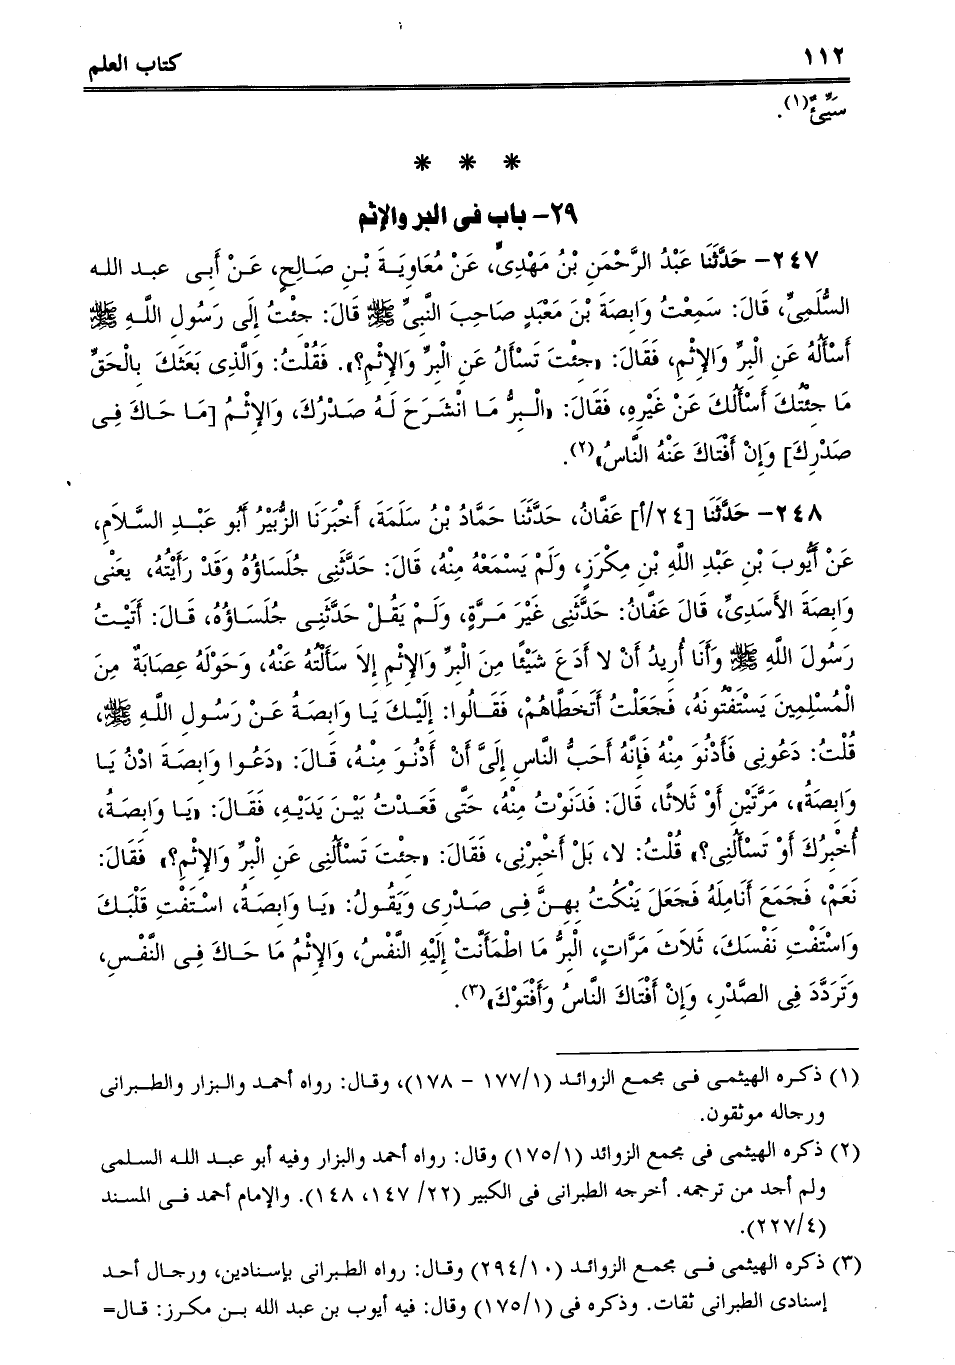 ١١٢
كتاب العلم
سَيِّئٌ(١).
* * *
٢٩- باب فى البر والإثم
٢٤٧- حَدَّثَنَا عَبْدُ الرَّحْمَنِ بْنُ مَهْدِىٍّ، عَنْ مُعَاوِيَةَ بْنِ صَالِحٍ، عَنْ أَبِى عبد الله
السُّلَمِىِّ، قَالَ: سَمِعْتُ وَابِصَةَ بْنَ مَعْبَدٍ صَاحِبَ النَّبِىِّ ﷺ قَالَ: جِئْتُ إِلَى رَسُولِ اللَّهِ ﷺ
أَسْأَلُهُ عَنِ الْبِرِّ وَالإِثْمِ، فَقَالَ: «جِئْتَ تَسْأَلُ عَنِ الْبِرِّ وَالإِثْمِ؟». فَقُلْتُ: وَالَّذِى بَعَثَكَ بِالْحَقِّ
مَا جِئْتُكَ أَسْأَلُكَ عَنْ غَيْرِهِ، فَقَالَ: «الْبِرُّ مَا انْشَرَحَ لَهُ صَدْرُكَ، وَالإِثْمُ [مَا حَاكَ فِى
صَدْرِكَ] وَإِنْ أَفْتَاكَ عَنْهُ النَّاسُ»(٢).
٢٤٨- حَدَّثَنَا [٢٤/أ] عَفَّانُ، حَدَّثَنَا حَمَّادُ بْنُ سَلَمَةَ، أَخْبَرَنَا الزُّبَيْرُ أَبُو عَبْدِ السَّلاَمِ،
عَنْ أَيُّوبَ بْنِ عَبْدِ اللَّهِ بْنِ مِكْرَزٍ، وَلَمْ يَسْمَعْهُ مِنْهُ، قَالَ: حَدَّثَنِى جُلَسَاؤُهُ وَقَدْ رَأَيْتُهُ، يعَنْى
وَابِصَةَ الأَسَدِىِّ، قَالَ عَفَّانُ: حَدَّثَنِى غَيْرَ مَرَّةٍ، وَلَمْ يَقُلْ حَدَّثَنِى جُلَسَاؤُهُ، قَالَ: أَتَيْتُ
رَسُولَ اللَّهِ ﷺ وَأَنَا أُرِيدُ أَنْ لا أَدَعَ شَيْئًا مِنَ الْبِرِّ وَالإِثْمِ إِلاَ سَأَلْتُهُ عَنْهُ، وَحَوْلَهُ عِصَابَةٌ مِنَ
الْمُسْلِمِينَ يَسْتَفْتُونَهُ، فَجَعَلْتُ أَتَخَطَّاهُمْ، فَقَالُوا: إِلَيْكَ يَا وَابِصَةُ عَنْ رَسُولِ اللَّهِ ﷺ،
قُلْتُ: دَعُونِى فَأَدْنُوَ مِنْهُ فَإِنَّهُ أَحَبُّ النَّاسِ إِلَىَّ أَنْ أَدْنُوَ مِنْهُ، قَالَ: «دَعُوا وَابِصَةَ ادْنُ يَا
وَابِصَةُ»، مَرَّتَيْنِ أَوْ ثَلاثًا، قَالَ: فَدَنَوْتُ مِنْهُ، حَتَّى قَعَدْتُ بَيْنَ يَدَيْهِ، فَقَالَ: «يَا وَابِصَةُ،
أُخْبِرُكَ أَوْ تَسْأَلُنِى؟» قُلْتُ: لا، بَلْ أَخْبِرْنِى، فَقَالَ: «جِئْتَ تَسْأَلُنِى عَنِ الْبِرِّ وَالإِثْمِ؟» فَقَالَ:
نَعَمْ، فَجَمَعَ أَنَامِلَهُ فَجَعَلَ يَنْكُتُ بِهِنَّ فِى صَدْرِى وَيَقُولُ: «يَا وَابِصَةُ، اسْتَفْتِ قَلْبَكَ
وَاسْتَفْتِ نَفْسَكَ، ثَلاثَ مَرَّاتٍ، الْبِرُّ مَا اطْمَأَنَّتْ إِلَيْهِ النَّفْسُ، وَالإِثْمُ مَا حَاكَ فِى النَّفْسِ،
وَتَرَدَّدَ فِى الصَّدْرِ، وَإِنْ أَفْتَاكَ النَّاسُ وَأَفْتَوْكَ»(٣).
(١) ذكره الهيثمى فى مجمع الزوائد (١/١٧٧ - ١٧٨)، وقال: رواه أحمد والبزار والطبرانى
ورجاله موثقون.
(٢) ذكره الهيثمى فى مجمع الزوائد (١/١٧٥) وقال: رواه أحمد والبزار وفيه أبو عبد الله السلمى
ولم أجد من ترجمه. أخرجه الطبرانى فى الكبير (٢٢/ ١٤٧، ١٤٨). والإمام أحمد فى المسند
(٤/٢٢٧).
(٣) ذكره الهيثمى فى مجمع الزوائد (١٠/٢٩٤) وقال: رواه الطبرانى بإسنادين، ورجال أحد
إسنادى الطبرانى ثقات. وذكره فى (١/١٧٥) وقال: فيه أيوب بن عبد الله بن مكرز: قال=